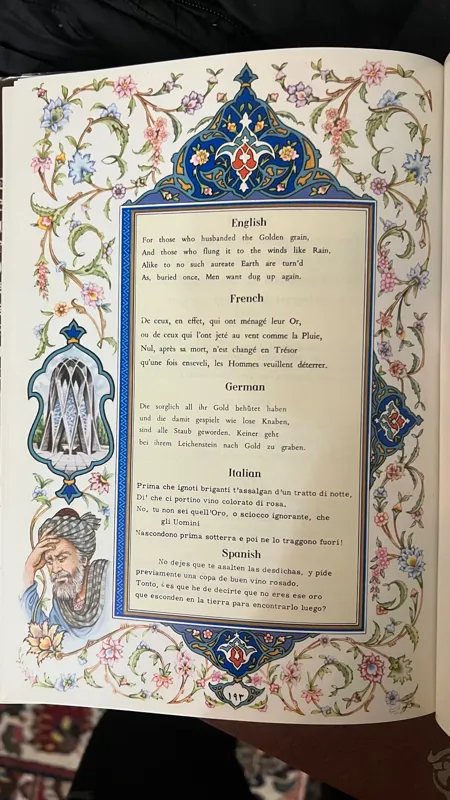 English
For those who husbanded the Golden grain,
And those who flung it to the winds like Rain,
Alike to no such aureate Earth are turn'd
As, buried once, Men want dug up again.
French
De ceux, en effet, qui ont ménagé leur Or,
ou de ceux qui l'ont jeté au vent comme la Pluie,
Nul, après sa mort, n'est changé en Trésor
qu'une fois enseveli, les Hommes veuillent déterrer.
German
Die sorglich all ihr Gold behütet haben
und die damit gespielt wie lose Knaben,
sind alle Staub geworden. Keiner geht
bei ihrem Leichenstein nach Gold zu graben.
Italian
Prima che ignoti briganti t'assalgan d'un tratto di notte,
Di' che ci portino vino colorato di rosa.
No, tu non sei quell'Oro, o sciocco ignorante, che
gli Uomini
Nascondono prima sotterra e poi ne lo traggono fuori!
Spanish
No dejes que te asalten las desdichas, y pide
previamente una copa de buen vino rosado.
Tonto, ¿es que he de decirte que no eres ese oro
que esconden en la tierra para encontrarlo luego?
۱۹۳